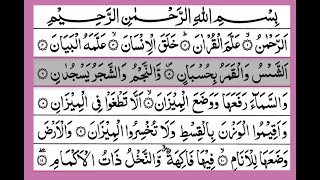 بِسْمِ اللهِ الرَّحْمٰنِ الرَّحِيْمِ
اَلرَّحْمٰنُ ۙ عَلَّمَ الْقُرْاٰنَ ؕ خَلَقَ الْاِنْسَانَ ۙ عَلَّمَهُ الْبَيَانَ
اَلشَّمْسُ وَالْقَمَرُ بِحُسْبَانٍ ۪ وَّالنَّجْمُ وَالشَّجَرُ يَسْجُدٰنِ
وَالسَّمَآءَ رَفَعَهَا وَوَضَعَ الْمِيْزَانَ ۙ اَلَّا تَطْغَوْا فِي الْمِيْزَانِ
وَاَقِيْمُوا الْوَزْنَ بِالْقِسْطِ وَلَا تُخْسِرُوا الْمِيْزَانَ وَالْاَرْضَ
وَضَعَهَا لِلْاَنَامِ ۙ فِيْهَا فَاكِهَةٌ ۪ وَّالنَّخْلُ ذَاتُ الْاَكْمَامِ